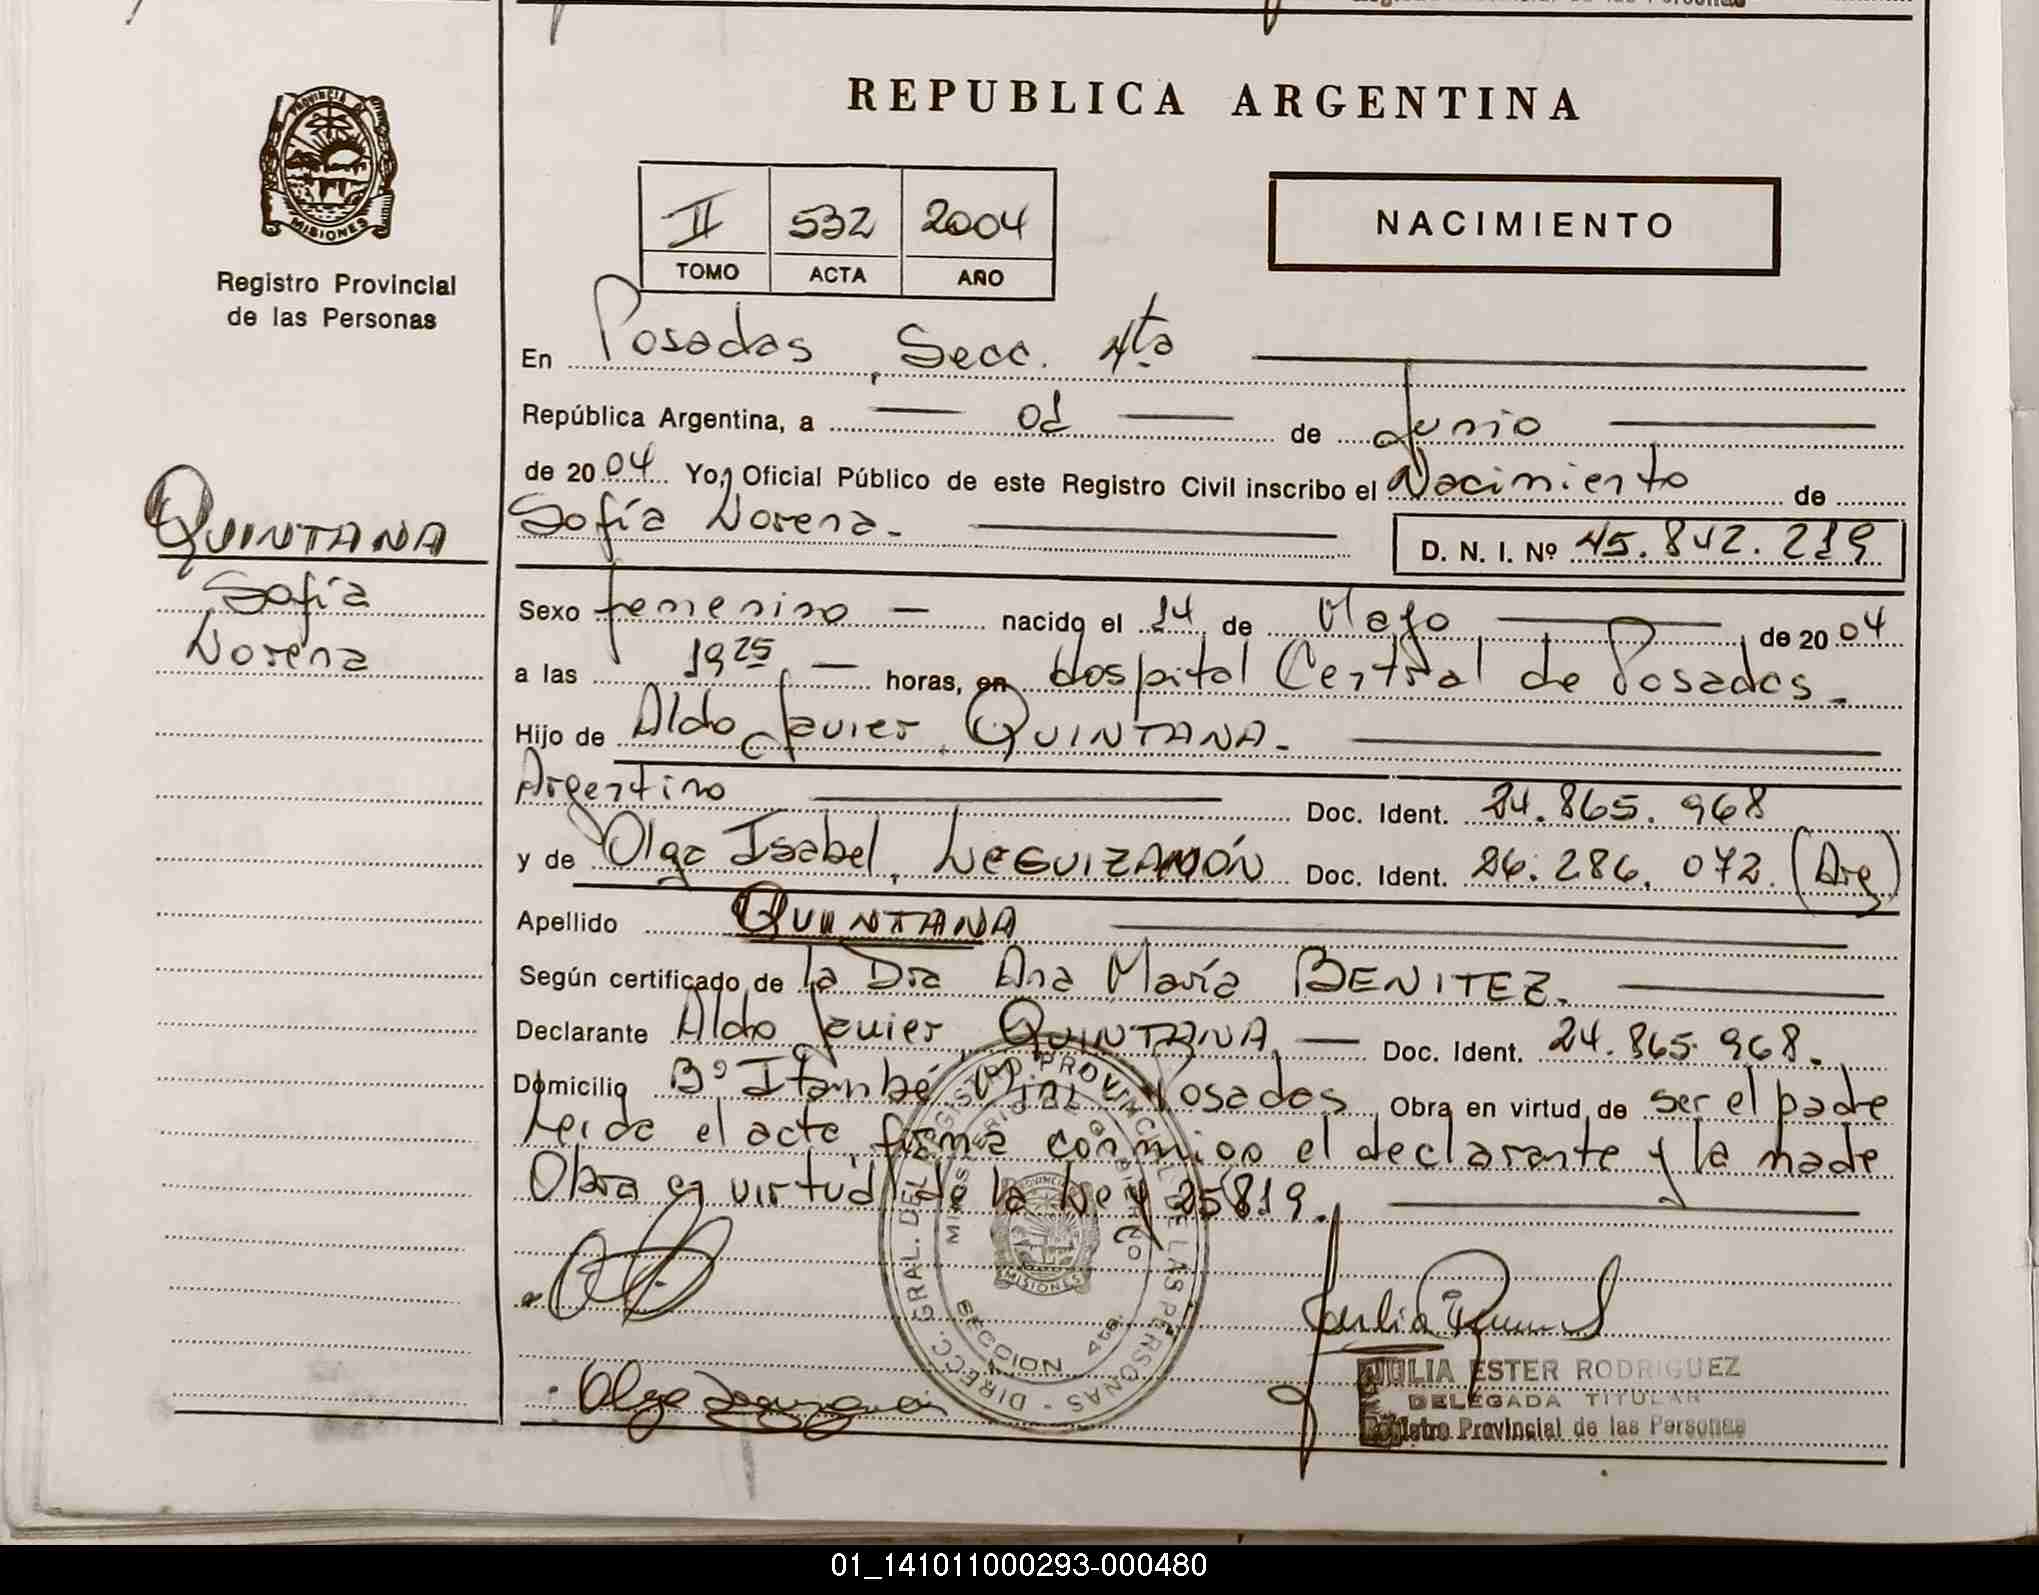 REPUBLICA ARGENTINA
PROVINCIA DE
MISIONES
Registro Provincial
de las Personas
II 532 2004
TOMO ACTA AÑO
NACIMIENTO
En Posadas, Secc. 4ta
República Argentina, a 01 de Junio
de 2004 Yo, Oficial Público de este Registro Civil inscribo el Nacimiento de
Sofía Lorena. D. N. I. Nº 45.842.219
QUINTANA
Sofía
Lorena
Sexo femenino nacido el 14 de Mayo de 2004
a las 19 25 horas, en Hospital Central de Posadas.
Hijo de Aldo Javier QUINTANA.
Argentino Doc. Ident. 24.865.968
y de Olga Isabel, LEGUIZAMÓN Doc. Ident. 26.286.072. (Arg)
Apellido QUINTANA
Según certificado de la Dra Ana María BENITEZ.
Declarante Aldo Javier QUINTANA, Doc. Ident. 24.865.968.
Domicilio Bº Itambé Mini Posadas Obra en virtud de ser el padre
Leida el acta, firma conmigo el declarante y la madre
Obra en virtud de la Ley 25819.
DIRECC. GRAL. DEL REGISTRO PROVINCIAL DE LAS PERSONAS
MINISTERIO DE GOBIERNO
MISIONES
SECCION 4ta.
Olga Leguizamón
JULIA ESTER RODRIGUEZ
DELEGADA TITULAR
Registro Provincial de las Personas
01_141011000293-000480